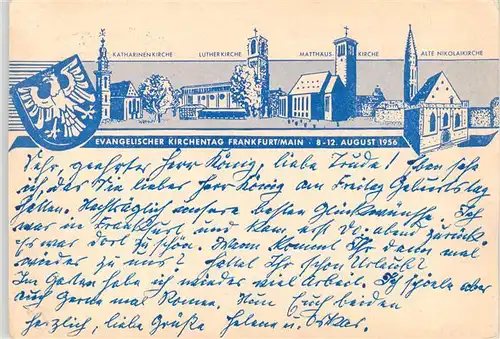 KATHARINENKIRCHE LUTHERKIRCHE MATTHÄUS-KIRCHE ALTE NIKOLAIKIRCHE
EVANGELISCHER KIRCHENTAG FRANKFURT/MAIN · 8-12. AUGUST 1956
Sehr geehrter Herr König, liebe Trude! Eben sehe
ich, das Sie lieber Herr König am Freitag Geburtstag
hatten. Nachträglich unsere besten Glückwünsche. Ich
war in Frankfurt und kam erst abend zurück
Es war dort zu schön. Wann kommt Ihr denn mal
wieder zu uns? hattet Ihr schon Urlaub?
Im Garten habe ich wieder viel Arbeit. Ich
auch gerne mal Nun Euch beiden
herzlich, liebe Grüße Helene u. Oskar.